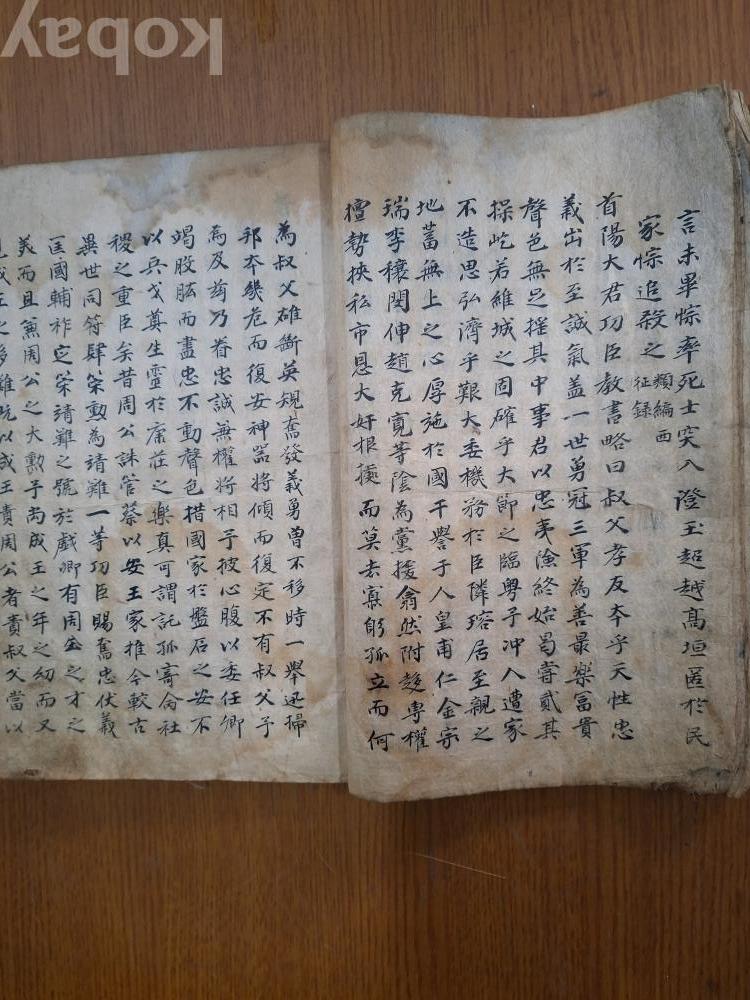 言未畢悰率死士突入澄玉超越高垣匿於民
家悰追殺之 類編西征録
首陽大君功臣教書略曰叔父孝友本乎天性忠
義出於至誠氣盖一世勇冠三軍為善最樂冨貴
聲色無足擇其中事君以忠夷險終始曷嘗貳其
操屹若維城之固確乎大節之臨粤予冲人遭家
不造思弘濟乎艱大委機務於臣隣瑢居至親之
地蓄無上之心厚施於國干譽于人皇甫仁金宗
瑞李穰閔伸趙克寬等陰為黨援翕然附趍専權
擅勢挾私市恩大奸根據而莫去寡躬孤立而何
為叔父確斷英規奮發義勇曽不移時一舉迅掃
邦本幾危而復安神器將傾而復定不有叔父予
為及玆乃眷忠誠無權將相予彼心腹以委任卿
竭股肱而盡忠不動聲色措國家於盤石之安不
以兵戈奠生靈於康莊之樂真可謂託孤寄命社
稷之重臣矣昔周公誅管蔡以安王家推今較古
異世同符肆榮勳為靖難一等功臣賜奮忠伏義
匡國輔祚定策靖難之號於戲卿有周公之才之
美而且兼周公之大勲予尚成王之年之幼而又
成王之多難旣以成王責周公者責叔父當以
kobay